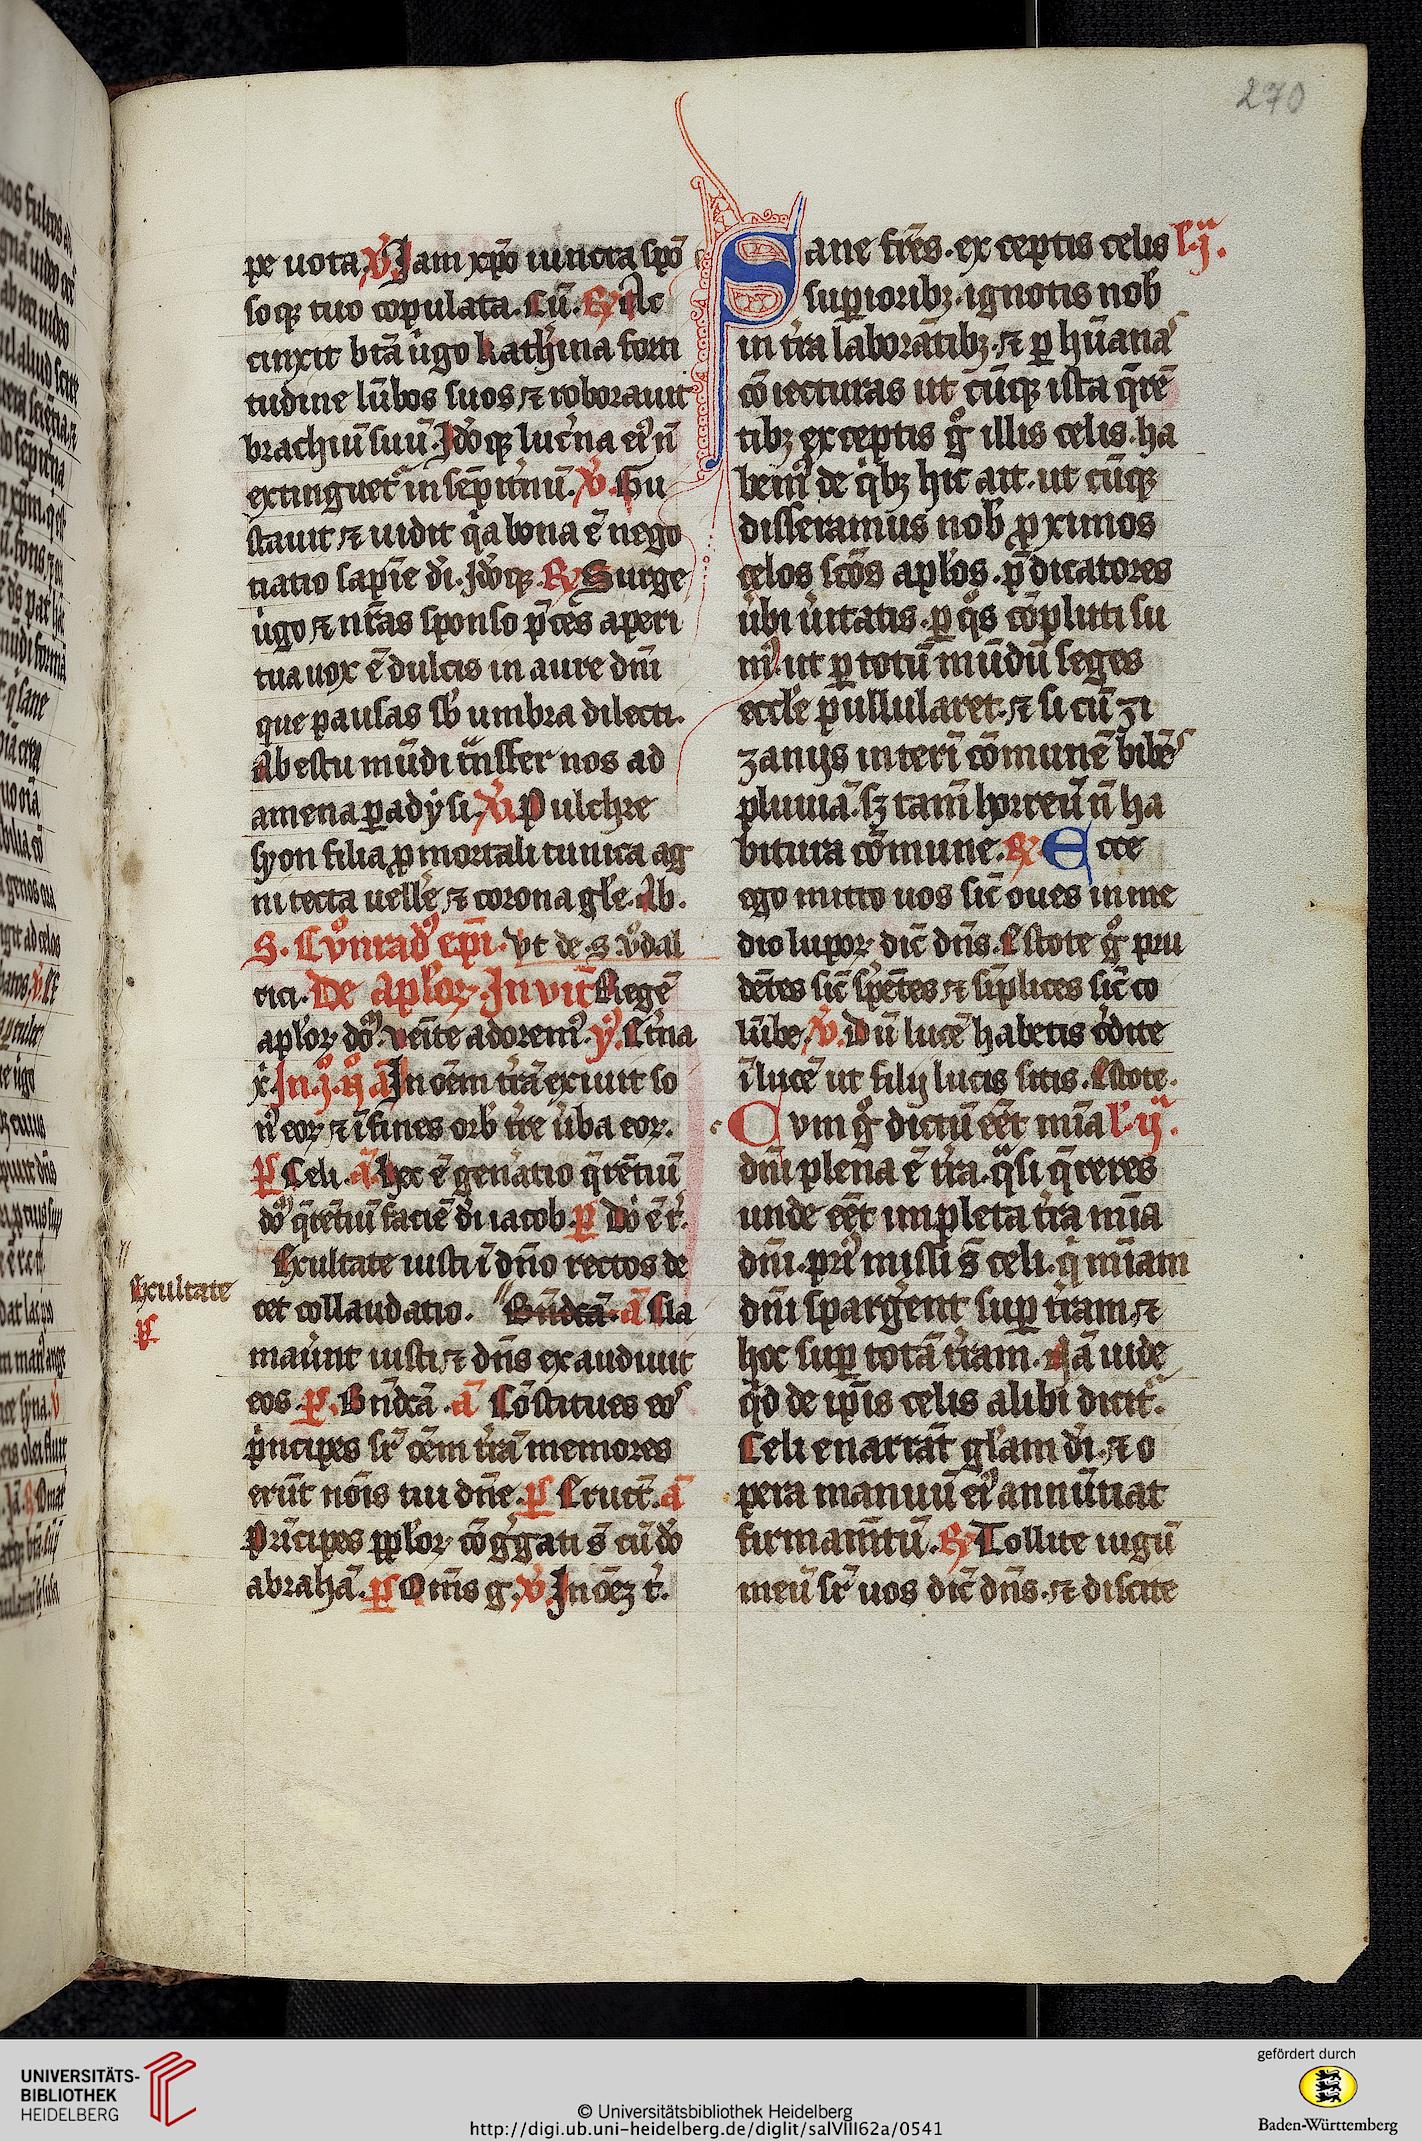 270
pe uota. V̓. Iam xp̄o iuncta spō
soq̄ tuo copulata. Cū. R̓ Ac
cinxit btā ůgo katħina forti
tudine lūbos suos ⁊ roborauit
brachiū suū. Idōq̄ luc̓na eiꝰ n̄
extinguet᷑ in sēpit̓nū. V̓. Gu
stauit ⁊ uidit qa bona ē nego
tiatio sapīe dī. Idōq̄. R̓ Surge
ůgo ⁊ nr̄as sponso p̄ces aperi
tua uox ē dulcis in aure dnī
que pausas sb̄ umbra dilecti.
Ab estu mūdi tͣnsfer nos ad
amena ꝑadysi. V̓. Pulchre
syon filia ꝓ mortali tunica ag
ni tecta uelle̓ ⁊ corona gl̄e. Ab.
S. Cůnradꝰ ep̄i. Vt de. S. vͦdal
rici. De Ap̄loꝝ. Invit̄ Regē
ap̄loꝝ dōꝫ. venīte adoremꝰ. y̓. Et̓na
x̄. In. j. ꝴ a̓ In oēm tr̄ā exiuit so
nꝰ eoꝝ ⁊ ī fines orb̄ tr̄e ůba eoꝝ.
P̓s Celi. a̓ Hec ē gen̓atio q̄rētiū
dōꝫ q̄rētiū faciē dī iacob. P̓s Dn̄i ē t̓.
Exultate iusti ī dn̄o rectos de
Exultate
P̓s
cet collaudatio. Bn̄dcā. a̓ Cla
mau̓nt iusti ⁊ dn̄s exaudiuit
eos. P̓s. Bn̄dcā. a̓ Cōstitues eos
p̓ncipes sr̄ oēm tr̄ā memores
erūt nōis tui dn̄e. P̓s Eruct̄. a̓
Prīcipes pp̄loꝝ cōg̓gati s̄ cū dō
abrahā. P̓s Om̄s g̓. V̓. In oēꝫ t̓.
Sane fr̄es. exceptis celis l̓. j.
sup̄ioribꝫ. ignotis nob̄
in tr̄a laborātibꝫ. ⁊ ꝑ hūanas
cōiecturas ut cūq̄ ista q̄rē
tibꝫ exceptis g̊ illis celis. ha
bemꝰ de q̓bꝫ hic ait. ut cūq̄
disseramus nob̄ ꝓximos
celos sc̄os ap̄los. p̄dicatores
ůbi ůitatis. ꝑ qͦs cōpluti su
mꝰ ut ꝑ totū mūdū seges
eccl̄e pullularet. ⁊ si cū zi
zanijs interī cōmunē bibēs
pluuiā. sꝫ tam̄ horreū n̄ ha
bitura cōmune. R̓ Ecce
ego mitto uos sic̄ oues in me
dio lupoꝝ dic̄ dn̄s. Estote g̊ pru
dētes sic̄ sp̄ētes ⁊ sīplices sic̄ co
lūbe. V̓. Dū lucē habetis c̓dite
ī lucē ut filij lucis sitis. Estote.
Cvm g̊ dictū eēt mīa l̓. ij.
dnī plena ē tr̄a. qͣsi q̄reres
unde eēt impleta tr̄a mīa
dnī. priꝰ missi s̄ celi. q̓ mīam
dnī sparge̓nt sup̄ tr̄am. ⁊
hoc sup̄ totā tr̄am. Nā uide
qd̄ de ip̄is celis alibi dicit᷑.
Celi enarrāt gl̄am dī. ⁊ o
pera manuū eiꝰ annūtiat
firmam̄tū. R̓ Tollite iugū
meū sr̄ uos dic̄ dn̄s. ⁊ discite
UNIVERSITÄTS-
BIBLIOTHEK
HEIDELBERG
© Universitätsbibliothek Heidelberg
http://digi.ub.uni-heidelberg.de/diglit/salVIII62a/0541
gefördert durch
Baden-Württemberg